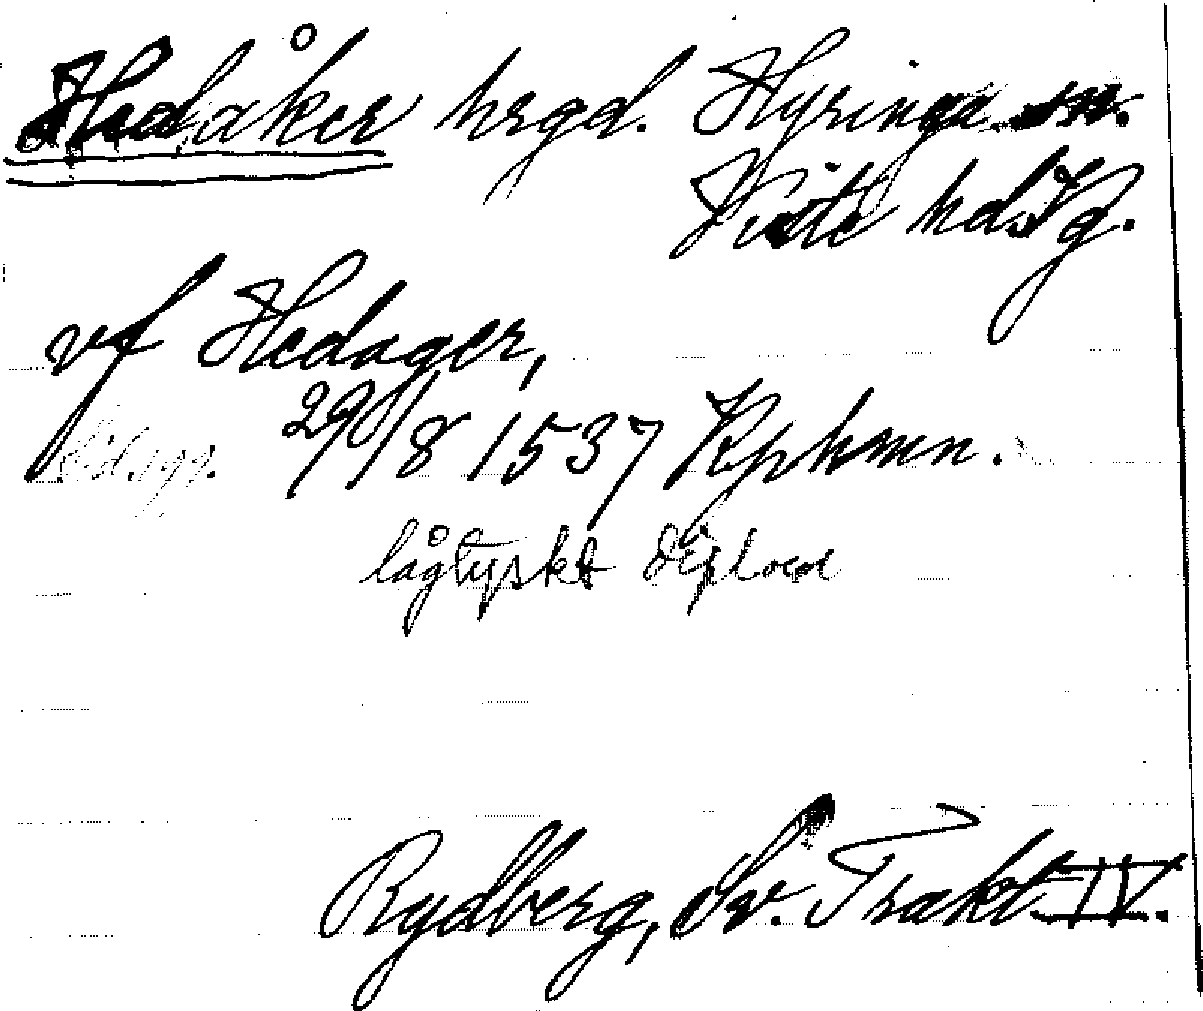 Hedåker hrgd. Hyringa sn.
Viste hd. Vg.
vf Hedager,
29/8 1537 Kphmn.
lågtyskt diplom
Rydberg, Sv. Trakt. IV.